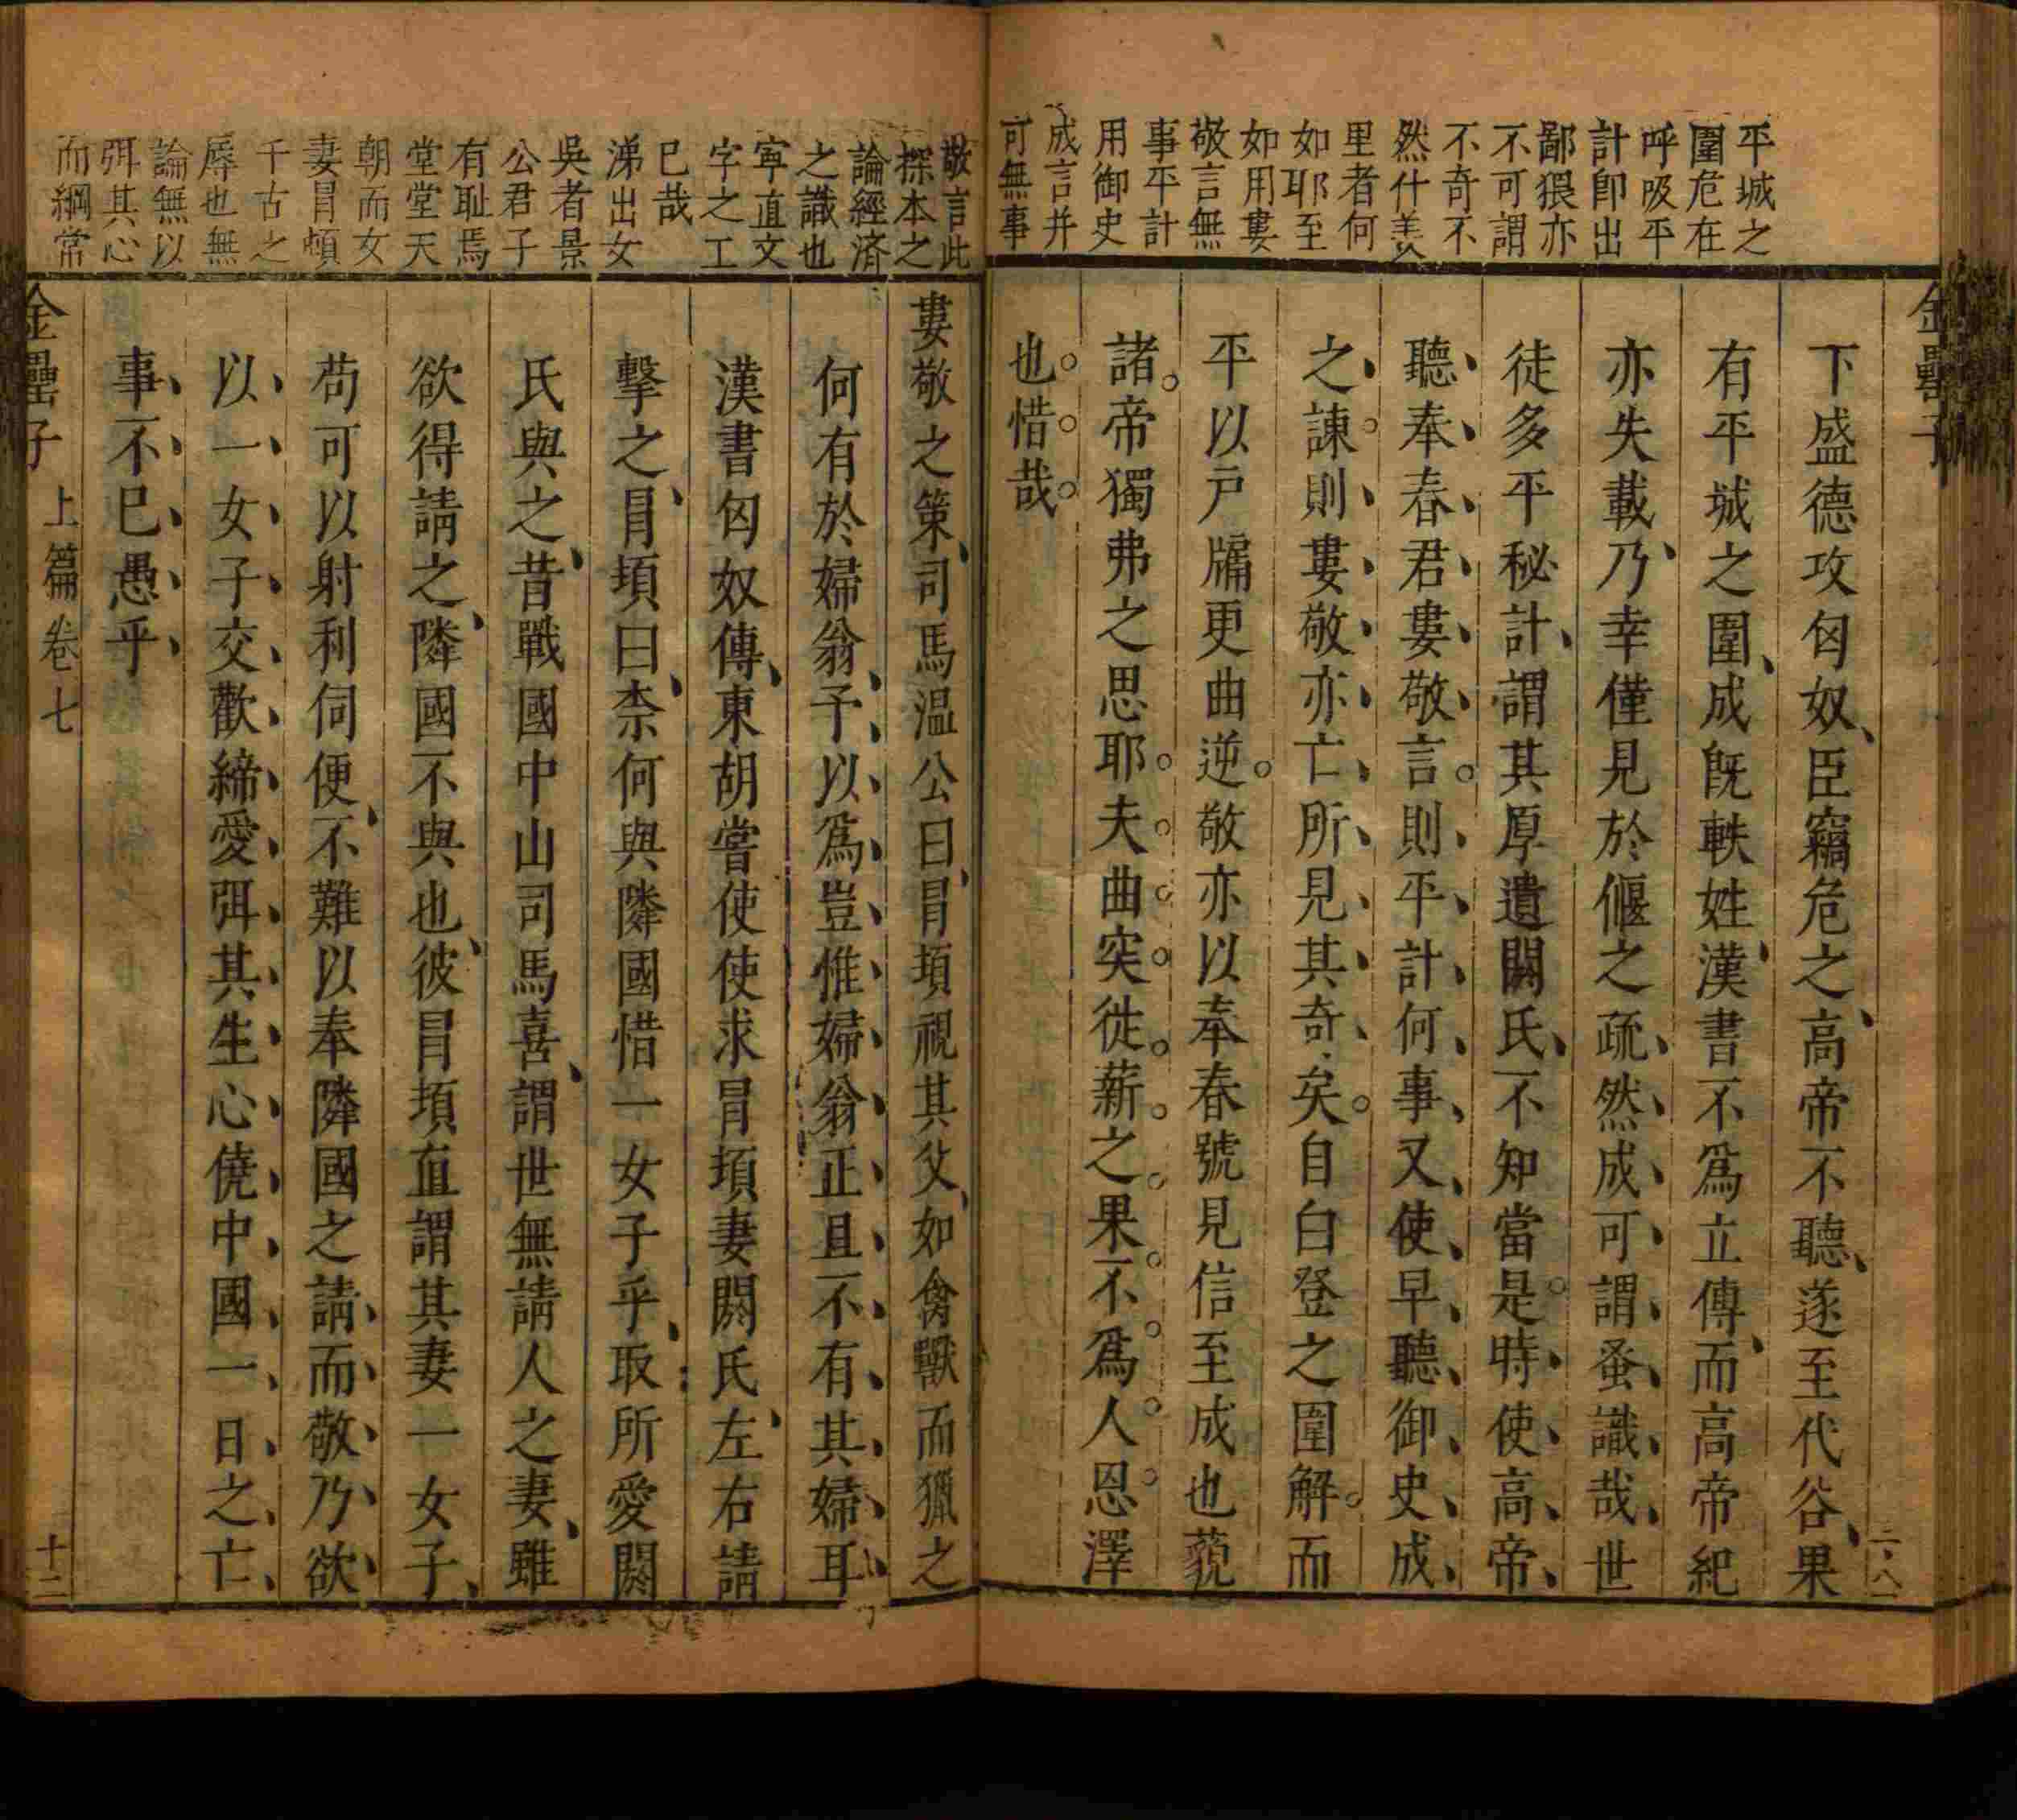 平城之
圍危在
呼吸平
計即出
鄙猥亦
不可謂
不奇不
然什美
里者何
如耶至
如用婁
敬言無
事平計
用御史
成言并
可無事
金罍子
下盛德攻匈奴臣竊危之高帝不聽遂至代谷果
有平城之圍成既軼姓漢書不爲立傳而高帝紀
亦失載乃幸僅見於偃之疏然成可謂蚤識哉世
徒多平秘計謂其厚遺閼氏不知當是時使高帝
聽奉春君婁敬言則平計何事又使早聽御史成
之諫則婁敬亦亡所見其奇矣自白登之圍解而
平以戶牖更曲逆敬亦以奉春號見信至成也藐
諸帝獨弗之思耶夫曲突徙薪之果不爲人恩澤
也惜哉
敬言此
探本之
論經濟
之識也
寧直文
字之工
已哉
涕出女
吳者景
公君子
有耻焉
堂堂天
朝而女
妻冒頓
千古之
辱也無
論無以
弭其心
而綱常
婁敬之策司馬温公曰冒頊視其父如禽獸而獵之
何有於婦翁予以爲豈惟婦翁正且不有其婦耳
漢書匈奴傳東胡嘗使使求冒頊妻閼氏左右請
擊之冒頊曰柰何與隣國惜一女子乎取所愛閼
氏與之昔戰國中山司馬喜謂世無請人之妻雖
欲得請之隣國不與也彼冒頊直謂其妻一女子
苟可以射利伺便不難以奉隣國之請而敬乃欲
以一女子交歡締愛弭其生心僥中國一日之亡
事不已愚乎
金罍子 上篇卷七 十二